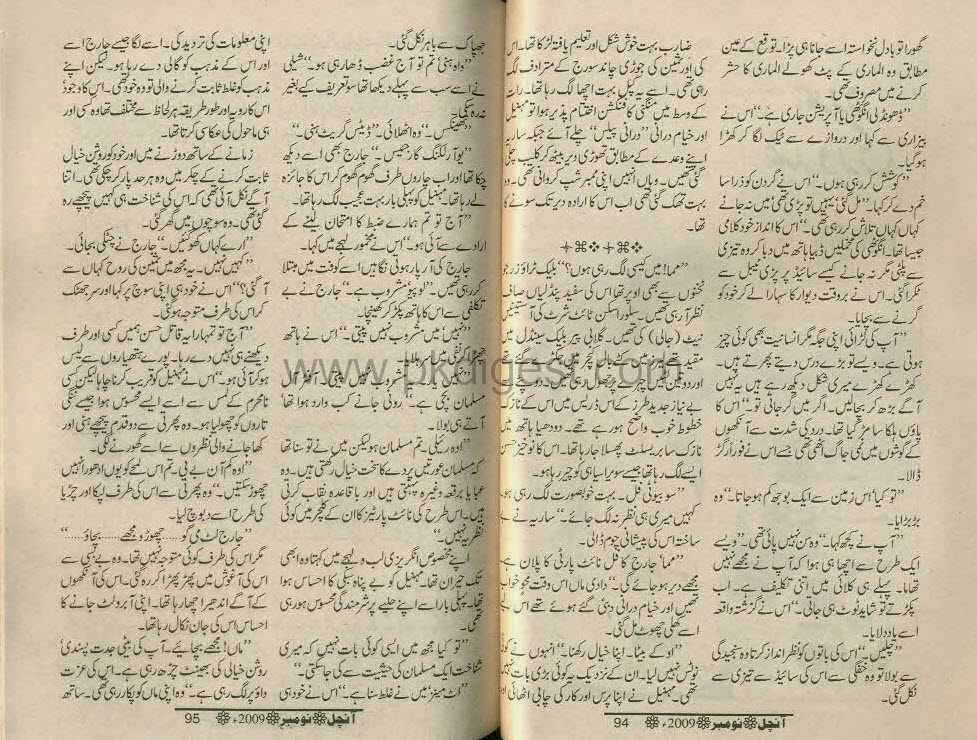 گھورا تو بادل نخواستہ اسے جانا ہی پڑا۔ توقع کے عین
مطابق وہ الماری کے پٹ کھولے الماری کا حشر
کرنے میں مصروف تھی۔
”ڈھونڈلی انگوٹھی یا آپریشن جاری ہے۔“ اس نے
بیزاری سے کہا اور دروازے سے ٹیک لگا کر کھڑا
ہوگیا۔
”کوشش کررہی ہوں۔“ اس نے گردن کو ذرا سا
خم دے کر کہا۔ ”مل گئی‘ یہیں تو پڑی تھی‘ میں نہ جانے
کہاں کہاں تلاش کررہی تھی۔“ اس کا انداز خودکلامی
جیسا تھا۔ انگوٹھی کی مخملیں ڈبیا ہاتھ میں دبا کر وہ تیزی
سے پلٹی مگر نہ جانے کیسے سائیڈ پر پڑی ٹیبل سے
ٹکرا گئی۔ اس نے بروقت دیوار کا سہارا لے کر خود کو
گرنے سے بچایا۔
”آپ کی لڑائی اپنی جگہ مگر انسانیت بھی کوئی چیز
ہوتی ہے۔ ویسے تو بڑے درس دیتے پھرتے ہیں۔
کھڑے کھڑے میری شکل دیکھ رہے ہیں یہ نہیں
آگے بڑھ کر بچالیں۔ اگر میں گر جاتی تو۔“ اس کا
پاؤں ہلکا سا مڑ گیا تھا۔ درد کی شدت سے آنکھوں
کے گوشوں میں نمی جاگ اٹھی تھی جسے اس نے فوراً رگڑ
ڈالا۔
”تو کیا‘ اس زمین سے ایک بوجھ کم ہوجاتا۔“ وہ
بڑبڑایا۔
”آپ نے کچھ کہا۔“ وہ سن نہیں پائی تھی۔ ”ویسے
ایک طرح سے اچھا ہی ہوا کہ آپ نے مجھے نہیں
تھاما۔ پہلے ہی کلائی میں اتنی تکلیف ہے۔ اب
پکڑتے تو شاید ٹوٹ ہی جاتی۔“ اس نے گزشتہ واقعہ
اسے یاد دلایا۔
”چلیں۔“ اس کی باتوں کو نظر انداز کرتا وہ سنجیدگی
سے بولا تو وہ خفگی سے اس کی سائیڈ سے تیزی سے
نکل گئی۔
ضارب بہت خوش شکل اور تعلیم یافتہ لڑکا تھا۔ اس
کی اور نگین کی جوڑی چاند سورج کے مترادف لگ
رہی تھی۔ اسے یہ کپل بہت اچھا لگ رہا تھا۔ رات
کے وسط میں منگنی کا فنکشن اختتام پذیر ہوا تو مہنیل
اور خیام درانی ”درانی پیلس“ چلے آئے جبکہ ساریہ
اپنے وعدے کے مطابق تھوڑی دیر بیٹھ کر کلب چلی
گئی تھیں۔ وہاں انہیں اپنی ممبر شپ کروانی تھی۔ وہ
بہت تھک گئی تھی اب اس کا ارادہ دیر تک سونے کا
تھا۔
”مما! میں کیسی لگ رہی ہوں؟“ بلیک ٹراؤزر جو
ٹخنوں سے بھی اوپر تھا اس کی سفید پنڈلیاں صاف
نظر آرہی تھیں۔ سلور اسکن ٹائٹ شرٹ کی آستینیں
نیٹ (جالی) کی تھیں۔ گلابی پیر بلیک سینڈل میں
بے نیاز جدید طرز کے اس ڈریس میں اس کے نازک
خطوط خوب واضح ہورہے تھے۔ دودھیا ہاتھ میں
نازک سا بریسلٹ جھول رہا تھا۔ اس کا نوخیز حسن
ایسے لگ رہا تھا جیسے سویرا سیاہی کو چیر رہا ہو۔
”سو بیوٹی فل۔ بہت خوبصورت لگ رہی ہو۔
کہیں میری ہی نظر نہ لگ جائے۔“ ساریہ نے بے
ساختہ اس کی پیشانی چوم ڈالی۔
”مما‘ جارج کا فل نائٹ پارٹی کا پلان ہے۔
مجھے دیر ہوجائے گی۔“ دادی ماں اس وقت محو خواب
تھیں اور خیام درانی دبئی گئے ہوئے تھے اس لیے
اسے کھلی چھوٹ مل گئی۔
”او کے بیٹا۔ اپنا خیال رکھنا۔“ انہوں نے کوئی
نوٹس نہیں لیا۔ ان کے نزدیک یہ کوئی بڑی بات نہیں
تھی۔ مہنیل نے اپنا پرس اور کار کی چابی اٹھائی اور
آنچل نومبر 2009ء 94
جھپاک سے باہر نکل گئی۔
”واہ ہنی! تم تو آج غضب ڈھا رہی ہو۔“ شیلی
نے اسے سب سے پہلے دیکھا تو تعریف کیے بغیر
نہ رہ سکی۔
”تھینکس۔“ وہ اٹھلائی۔ ”ڈیٹس گریٹ ہنی۔“
”یو آر لکنگ گارجیس۔“ جارج بھی اسے دیکھ
چکا تھا اور اب چاروں طرف گھوم گھوم کر اس کا جائزہ
لے رہا تھا۔ مہنیل کو پہلی بار بہت عجیب لگ رہا تھا۔
”آج تو تم ہمارے ضبط کا امتحان لینے کے
ارادے سے آئی ہو۔“ اس نے مخمور لہجے میں کہا۔
جارج کی آر پار ہوتی نگاہیں اسے کوفت میں مبتلا
کررہی تھیں۔ ”لو پیو‘ مشروب ہے۔“ جارج نے بے
تکلفی سے اس کا ہاتھ پکڑ کر کھینچا۔
”نہیں‘ میں مشروب نہیں پیتی۔“ اس نے ہاتھ
مسلمان بچی ہے۔“ رونی جانے کب وارد ہوا تھا
آتے ہی بولا۔
”اوہ رئیلی۔ تم مسلمان ہو لیکن میں نے تو سنا تھا
کہ مسلمان عورتیں پردے کا سخت خیال رکھتی ہیں۔ وہ
عبایا برقعہ وغیرہ پہنتی ہیں اور باقاعدہ نقاب کرتی
ہیں۔ اس طرح کی نائٹ پارٹیز کا ان کے کلچر میں کوئی
نظریہ نہیں۔“
اپنے مخصوص انگریزی لب و لہجے میں کہتا وہ ابھی
تک حیران تھا۔ مہنیل کو بے پناہ سبکی کا احساس ہوا
تھا۔ پہلی بار اسے اپنے حلیے پر شرمندگی محسوس ہورہی
تھی۔
”تو کیا مجھ میں ایسی کوئی بات نہیں کہ میری
شناخت ایک مسلمان کی حیثیت سے کی جاسکتی۔“
”اٹ مینز‘ میں نے غلط سنا ہے۔“ اس نے خود ہی
اپنی معلومات کی تردید کی۔ اسے لگا جیسے جارج اسے
اور اس کے مذہب کو گالی دے رہا ہو۔ لیکن اپنے
مذہب کو غلط ثابت کرنے والی تو وہ خود تھی۔ اس کا وجود‘
اس کا رویہ اور طور طریقہ ہر لحاظ سے مختلف تھا وہ کسی اور
ہی ماحول کی عکاسی کرتا تھا۔
زمانے کے ساتھ دوڑنے میں اور خود کو روشن خیال
ثابت کرنے کے چکر میں وہ ہر حد پار کرچکی تھی۔ اتنا
آگے نکل آئی تھی کہ اس کی شناخت ہی کہیں پیچھے رہ
گئی تھی۔ وہ سوچوں میں گھر گئی۔
”ارے کہاں کھو گئیں۔“ جارج نے چٹکی بجائی۔
”کہیں نہیں۔ یہ مجھ میں مثین کی روح کہاں سے
آ گئی؟“ اس نے خود ہی اپنی سوچ پر کہا اور سر جھٹک
کر اس کی طرف متوجہ ہوگئی۔
”آج تو تمہارا یہ قاتل حسن ہمیں کسی اور طرف
دیکھنے ہی نہیں دے رہا۔ پورے ہتھیاروں سے لیس
ہوکر آئی ہو۔“ اس نے مہنیل کو قریب کرنا چاہا لیکن کسی
نامحرم کے لمس سے اسے ایسے محسوس ہوا جیسے ننگی
تاروں کو چھولیا ہو۔ وہ پھرتی سے دو قدم پیچھے ہٹی اور
کھا جانے والی نظروں سے اسے گھورنے لگی۔
”اوہ کم آن بے بی‘ تم اس لمحے کو یوں ادھورا نہیں
چھوڑ سکتیں۔“ وہ پھرتی سے اس کی طرف لپکا اور چڑیا
کی طرح اسے دبوچ لیا۔
”جارج لٹ می گو...... چھوڑو مجھے...... بچاؤ......“
مگر اس کی طرف کوئی متوجہ نہیں تھا۔ وہ بے بسی سے
اس کی آغوش میں پھڑپھڑا کر رہ گئی۔ اس کی آنکھوں
کے آگے اندھیرا چھا رہا تھا۔ اپنی آبرو لٹ جانے کا
احساس اس کی جان نکال رہا تھا۔
”ماں! مجھے بچایئے‘ آپ کی بیٹی جدت پسندی‘
روشن خیالی کی بھینٹ چڑھ رہی ہے۔ اس کی عزت
داؤ پر لگ رہی ہے۔“ وہ اپنی ماں کو پکار رہی تھی۔ ساتھ
آنچل نومبر 2009ء 95
www.pkdigest.com